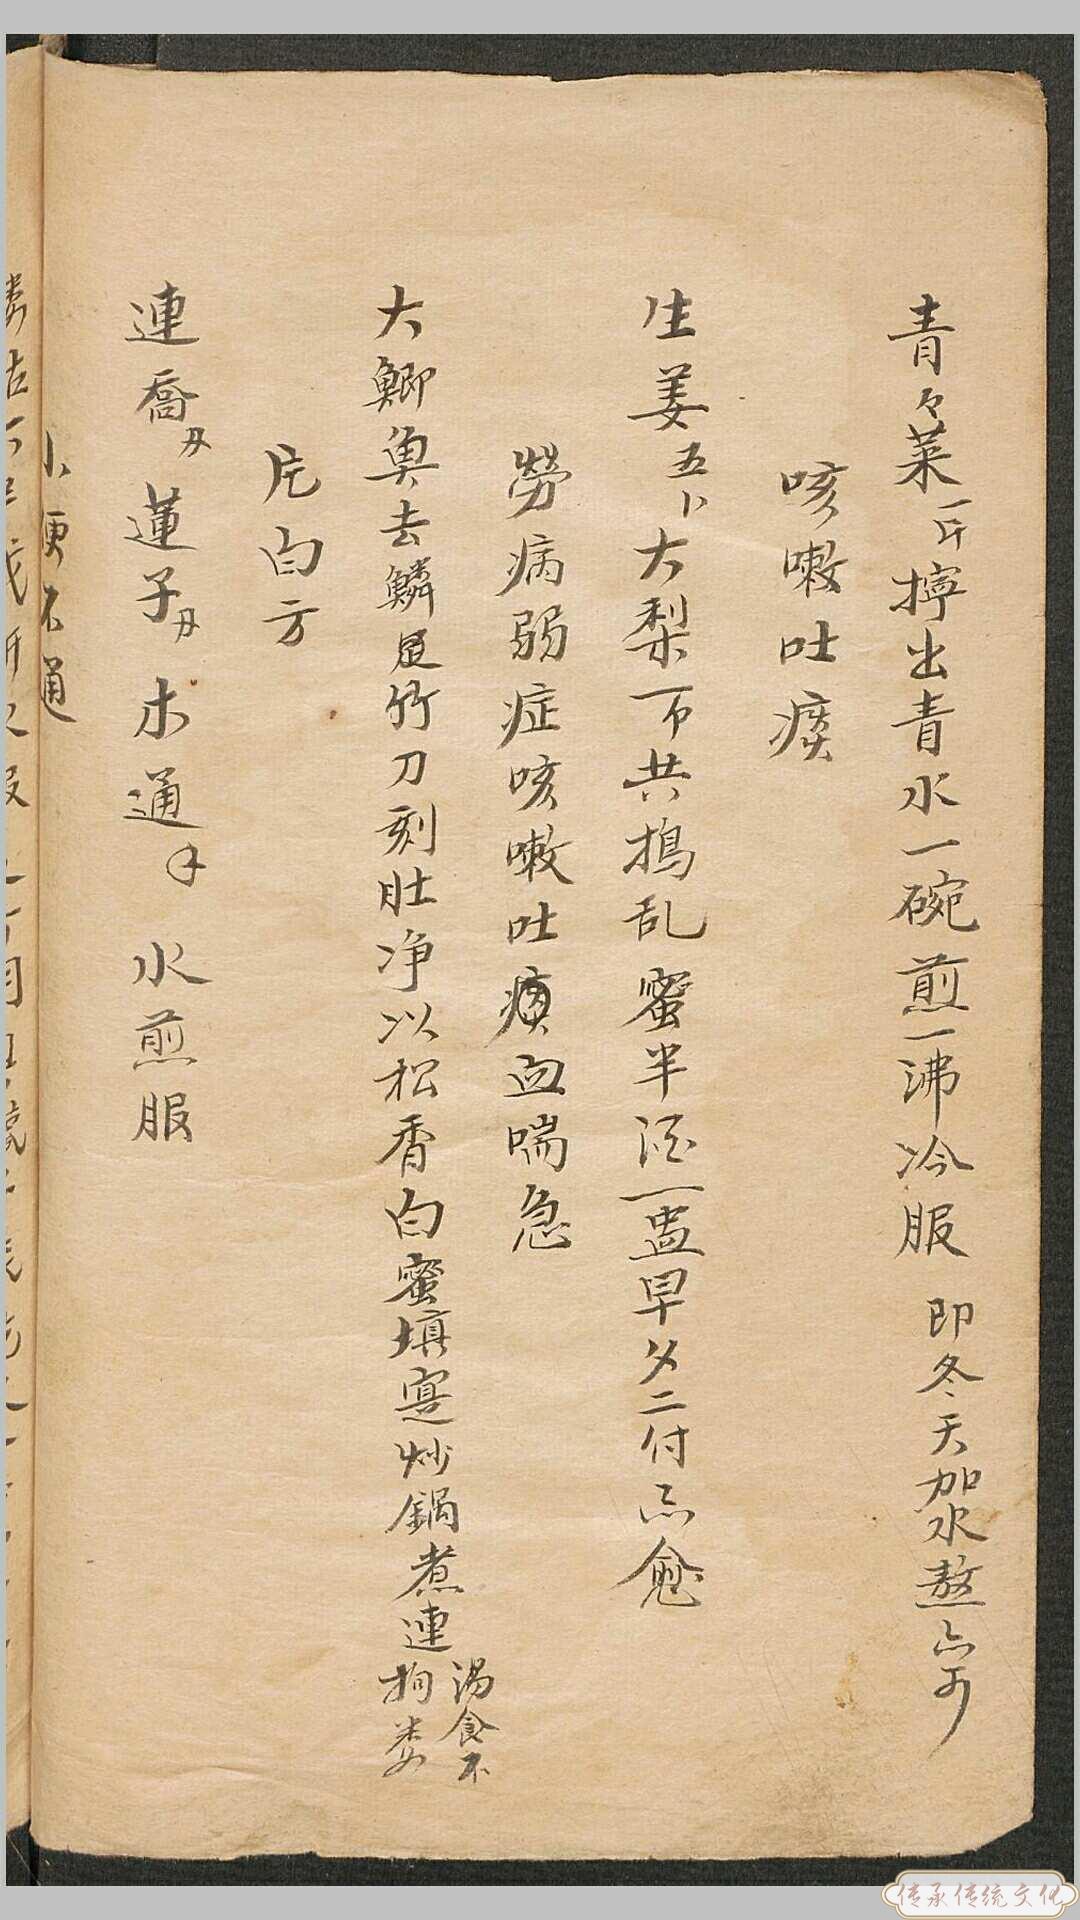 青々菜一斤擰出青水一碗煎一沸冷服 即冬天加水熬亦可
咳嗽吐痰
生姜五卜大梨一个共搗乱蜜半酒一盅早夕二付亦愈
勞病弱症咳嗽吐痰血喘急
大鯽魚去鱗足竹刀刻肚净以松香白蜜填炒鍋煮連
湯食不
拘
疕白方
連喬 蓮子 木通 水煎服
小便不通
传承传统文化